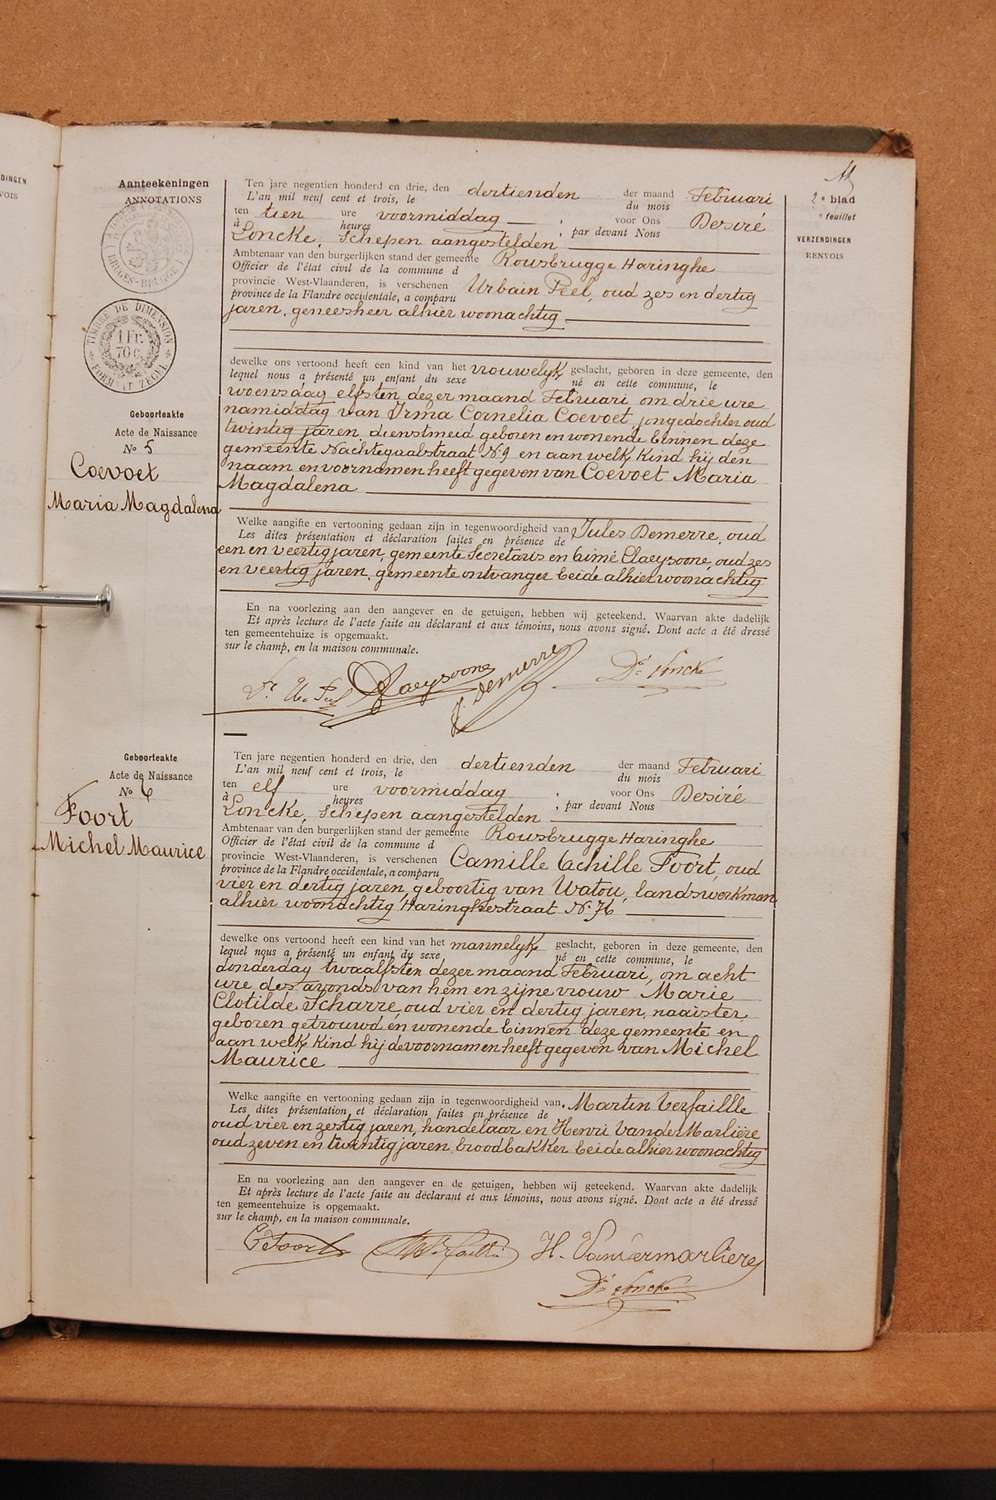 Aanteekeningen
ANNOTATIONS
TIMBRE DE DIMENSION
1 Fr.
70 c.
Geboorteakte
Acte de Naissance
No 5
Coevoet
Maria Magdalena
Ten jare negentien honderd en drie, den dertienden der maand Februari
L'an mil neuf cent et trois, le du mois
ten tien ure voormiddag voor Ons Desiré
à heures , par devant Nous
Loncke, Schepen aangestelden
Ambtenaar van den burgerlijken stand der gemeente Rousbrugge Haringhe
Officier de l'état civil de la commune d
provincie West-Vlaanderen, is verschenen Urbain Peel, oud zes en dertig
province de la Flandre occidentale, a comparu
jaren, geneesheer alhier woonachtig
dewelke ons vertoond heeft een kind van het vrouwelyk geslacht, geboren in deze gemeente, den
lequel nous a présenté un enfant du sexe né en cette commune, le
woensdag elfsten dezer maand Februari om drie ure
namiddag van Irma Cornelia Coevoet, jongedochter oud
twintig jaren, dienstmeid geboren en wonende binnen deze
gemeente Nachtegaalstraat N. 9 en aan welk kind hij den
naam en voornamen heeft gegeven van Coevoet Maria
Magdalena
Welke aangifte en vertooning gedaan zijn in tegenwoordigheid van Jules Demerre, oud
Les dites présentation et déclaration faites en présence de
een en veertig jaren, gemeente Secretaris en Aimé Claeysoone, oud zes
en veertig jaren, gemeente ontvanger beide alhier woonachtig
En na voorlezing aan den aangever en de getuigen, hebben wij geteekend. Waarvan akte dadelijk
Et après lecture de l'acte faite au déclarant et aux témoins, nous avons signé. Dont acte a été dressé
ten gemeentehuize is opgemaakt.
sur le champ, en la maison communale.
Claeysoone J. Demerre Dé Loncke
Geboorteakte
Acte de Naissance
No 6
Foort
Michel Maurice
Ten jare negentien honderd en drie, den dertienden der maand Februari
L'an mil neuf cent et trois, le du mois
ten elf ure voormiddag voor Ons Desiré
à heures , par devant Nous
Loncke, Schepen aangestelden
Ambtenaar van den burgerlijken stand der gemeente Rousbrugge Haringhe
Officier de l'état civil de la commune d
provincie West-Vlaanderen, is verschenen Camille Achille Foort, oud
province de la Flandre occidentale, a comparu
vier en dertig jaren, geboortig van Watou, landswerkman
alhier woonachtig Haringhestraat N. 76
dewelke ons vertoond heeft een kind van het mannelyk geslacht, geboren in deze gemeente, den
lequel nous a présenté un enfant du sexe né en cette commune, le
donderdag twaalfsten dezer maand Februari, om acht
ure des avonds van hem en zijne vrouw Marie
Clotilde Scharre, oud vier en dertig jaren, naaister
geboren getrouwd en wonende binnen deze gemeente en
aan welk kind hij de voornamen heeft gegeven van Michel
Maurice
Welke aangifte en vertooning gedaan zijn in tegenwoordigheid van Martin Verfaillle
Les dites présentation et déclaration faites en présence de
oud vier en zestig jaren, handelaar en Henri Van der Marlière
oud zeven en twintig jaren, broodbakker beide alhier woonachtig
En na voorlezing aan den aangever en de getuigen, hebben wij geteekend. Waarvan akte dadelijk
Et après lecture de l'acte faite au déclarant et aux témoins, nous avons signé. Dont acte a été dressé
ten gemeentehuize is opgemaakt.
sur le champ, en la maison communale.
C Foort H. Vandermarliere
Dé Loncke
2e blad
feuillet
VERZENDINGEN
RENVOIS